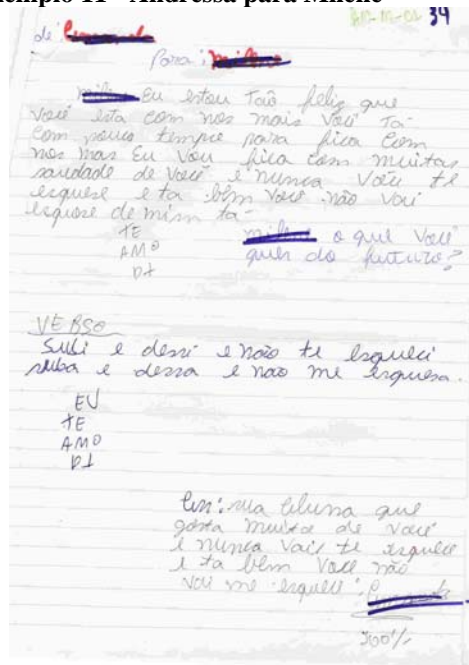 Exemplo 11 - Andressa para Milene
BD-M-02 34
de:
Para:
Eu estou Tão feliz que
Você esta com nos mais Você Ta
com pouco tempo para fica com
nos mas Eu Vou fica com muitas
saudade de Você e nunca Vou te
esquese e ta bem Você não Vai
esquese de mim ta
TE
AMO
D+
o que Você
quer do futuro?
VERSO
Subi e desci e não te esqueci
suba e dessa e não me esquesa.
EU
TE
AMO
D+
sua aluna que
gosta muito de você
e nunca Vai te esquece
e ta bem Você não
Vai me esquece
100%